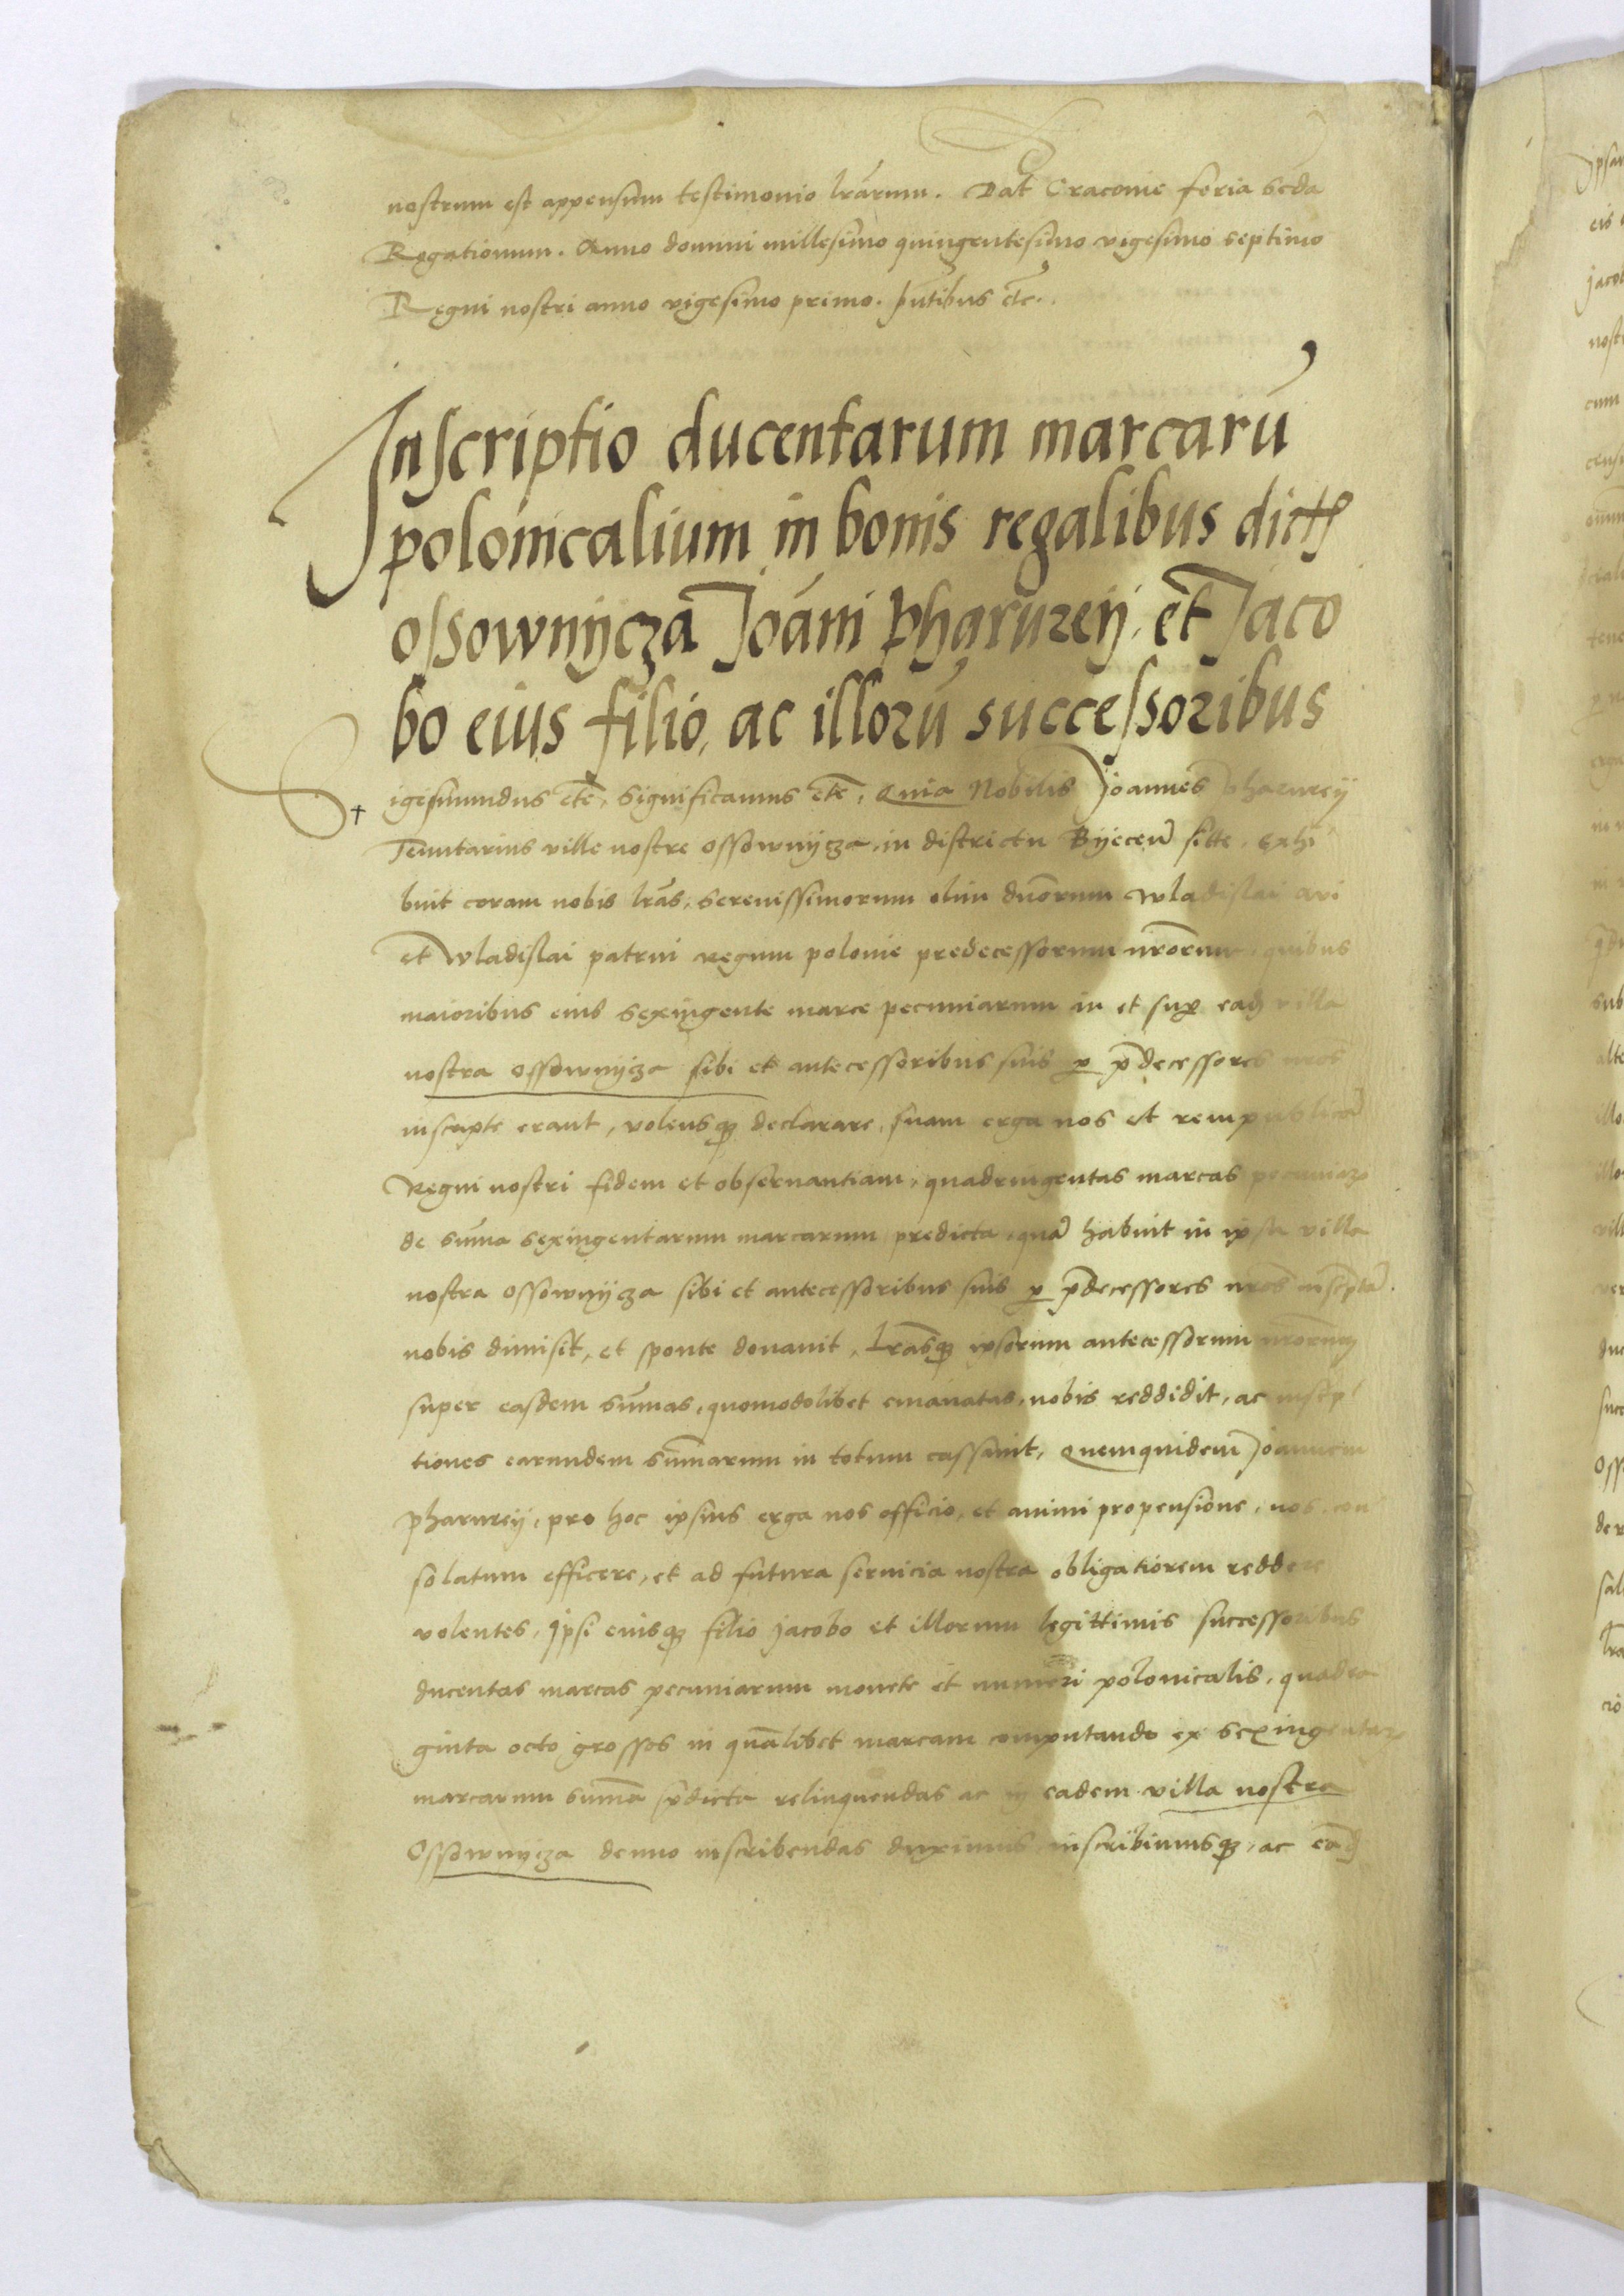 nostrum est appensum testimonio lrarum. Dat Craconie feria scda
Rogationum. Anno domini millesimo quingentesimo vigesimo septimo
Regni nostri anno vigesimo primo. pntibus etc.
Inscriptio ducentarum marcarū
polonicalium in bonis regalibus dict
ossownÿcza Joāni Pharureÿ, et Jaco
bo eius filio, ac illorū successoribus
Sigesmundus etc, significamus etc, Quia Nobilis Joannes Pharureÿ
Tenutarius ville nostre Ossownÿcza, in districtu Bÿeceñ site, exhi
buit coram nobis lras, serenissimorum olim dnorum Wladislai avi
et Wladislai patrui Regum polonie predecessorum nrorum, quibus
maioribus eius sexingente marce pecuniarum in et sup ead villa
nostra Ossownÿcza sibi et antecessoribus suis p pdecessores nros
inscripte erant, volensq declarare, suam erga nos et rempublicā
Regni nostri fidem et observantiam, quadringentas marcas pecuniar
de suma sexingentarum marcarum predicta, quā habuit in ipsa villa
nostra Ossownÿcza sibi et antecessoribus suis p pdecessores nros inscptā.
nobis dimisit, et sponte donavit, Lrasq ipsorum antecessorum nrorum
super easdem sumas, quomodolibet emanatas, nobis reddidit, ac inscrip
tiones earundem sumarum in totum cassavit, Quemquidem Joannem
Pharureÿ, pro hoc ipsius erga nos officio, et animi propensione, nos con
solatum efficere, et ad futura servicia nostra obligatiorem reddere
volentes, Ipsi eiusq filio Jacobo et illorum legittimis successoribus
ducentas marcas pecuniarum monete et numeri polonicalis, quadra
ginta octo grossos in quālibet marcam computando ex sexingentar
marcarum sumā pdicta relinquendas ac in eadem villa nostra
Ossownÿcza denuo inscribendas duximus, inscribimusq, ac ead